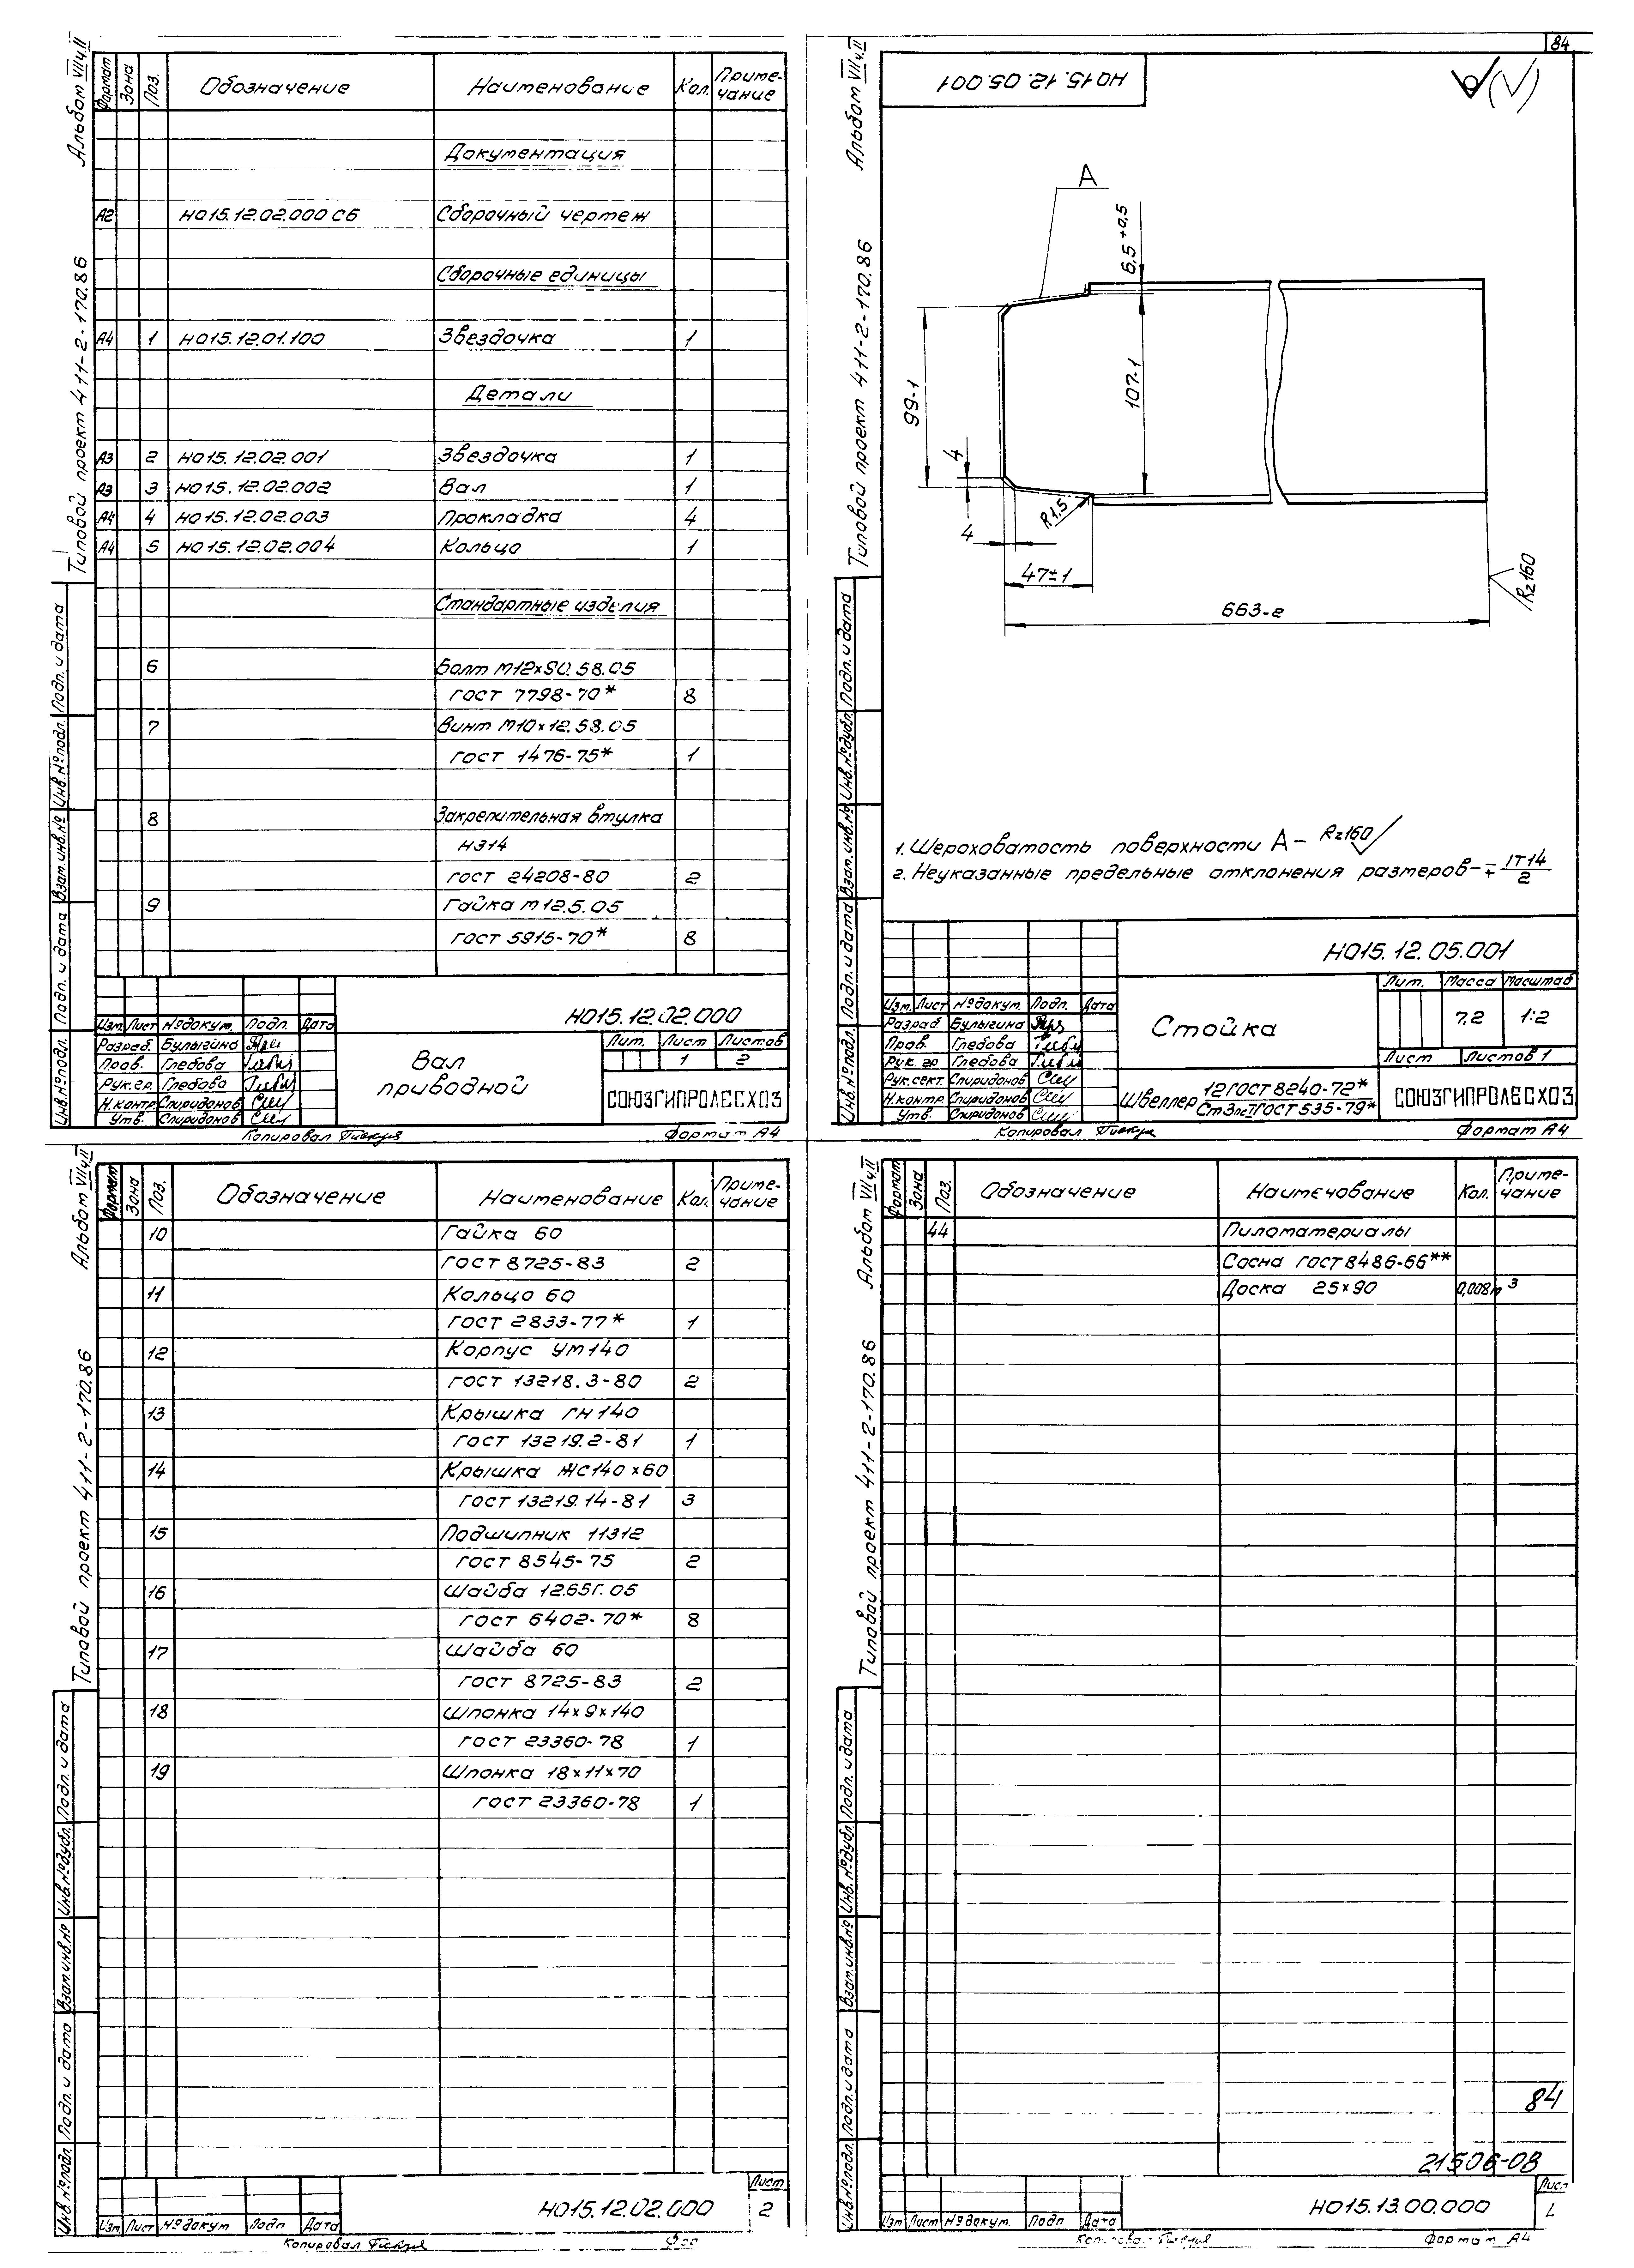 Альбом VII ч.II
Типовой проект 411-2-170.86
Формат Зона Поз. Обозначение Наименование Кол. Приме-
чание
Документация
А2 НО15.12.02.000 СБ Сборочный чертеж
Сборочные единицы
А4 1 НО15.12.01.100 Звездочка 1
Детали
А3 2 НО15.12.02.001 Звездочка 1
А3 3 НО15.12.02.002 Вал 1
А4 4 НО15.12.02.003 Прокладка 4
А4 5 НО15.12.02.004 Кольцо 1
Стандартные изделия
6 Болт М12×90.58.05
ГОСТ 7798-70* 8
7 Винт М10×12.58.05
ГОСТ 1476-75* 1
8 Закрепительная втулка
Н314
ГОСТ 24208-80 2
9 Гайка М12.5.05
ГОСТ 5915-70* 8
Инв.№подл. Подп. и дата Взам.инв.№ Инв.№подл. Подп. и дата
НО15.12.02.000
Изм. Лист №докум. Подп. Дата
Разраб. Булыгина
Пров. Глебова
Рук.гр. Глебова
Н.контр. Спиридонов
Утв. Спиридонов
Вал
приводной
Лит. Лист Листов
1 2
СОЮЗГИПРОЛЕСХОЗ
Копировал Формат А4
84
Альбом VII ч.II
Типовой проект 411-2-170.86
НО15.12.05.001
(√)
А
6,5+0,5
99-1
107-1
4
4
R1,5
47±1
663-2
Rz160
1. Шероховатость поверхности А – Rz160
2. Неуказанные предельные отклонения размеров – ∓ IT14
2
Инв.№подл. Подп. и дата Взам.инв.№ Инв.№дубл. Подп. и дата
НО15.12.05.001
Изм. Лист №докум. Подп. Дата
Разраб. Булыгина
Пров. Глебова
Рук. гр. Глебова
Рук.сект. Спиридонов
Н.контр. Спиридонов
Утв. Спиридонов
Стойка
Лит. Масса Масштаб
7,2 1:2
Лист Листов 1
Швеллер 12 ГОСТ 8240-72*
Ст3пс ГОСТ 535-79*
СОЮЗГИПРОЛЕСХОЗ
Копировал Формат А4
Альбом VII ч.II
Типовой проект 411-2-170.86
Формат Зона Поз. Обозначение Наименование Кол. Приме-
чание
10 Гайка 60
ГОСТ 8725-83 2
11 Кольцо 60
ГОСТ 2833-77* 1
12 Корпус УМ140
ГОСТ 13218.3-80 2
13 Крышка ГН140
ГОСТ 13219.2-81 1
14 Крышка ЖС140×60
ГОСТ 13219.14-81 3
15 Подшипник 11312
ГОСТ 8545-75 2
16 Шайба 12.65Г.05
ГОСТ 6402-70* 8
17 Шайба 60
ГОСТ 8725-83 2
18 Шпонка 14×9×140
ГОСТ 23360-78 1
19 Шпонка 18×11×70
ГОСТ 23360-78 1
Инв.№подл. Подп. и дата Взам.инв.№ Инв.№дубл. Подп. и дата
Изм Лист №докум Подп Дата
НО15.12.02.000
Лист
2
Копировал
Альбом VII ч.II
Типовой проект 411-2-170.86
Формат Зона Поз. Обозначение Наименование Кол. Приме-
чание
44 Пиломатериалы
Сосна ГОСТ 8486-66**
Доска 25×90 0,008 м3
Инв.№подл. Подп. и дата Взам.инв.№ Инв.№дубл. Подп. и дата
84
21506-08
Изм Лист №докум. Подп Дата
НО15.13.00.000
Лист
Копировал Формат А4